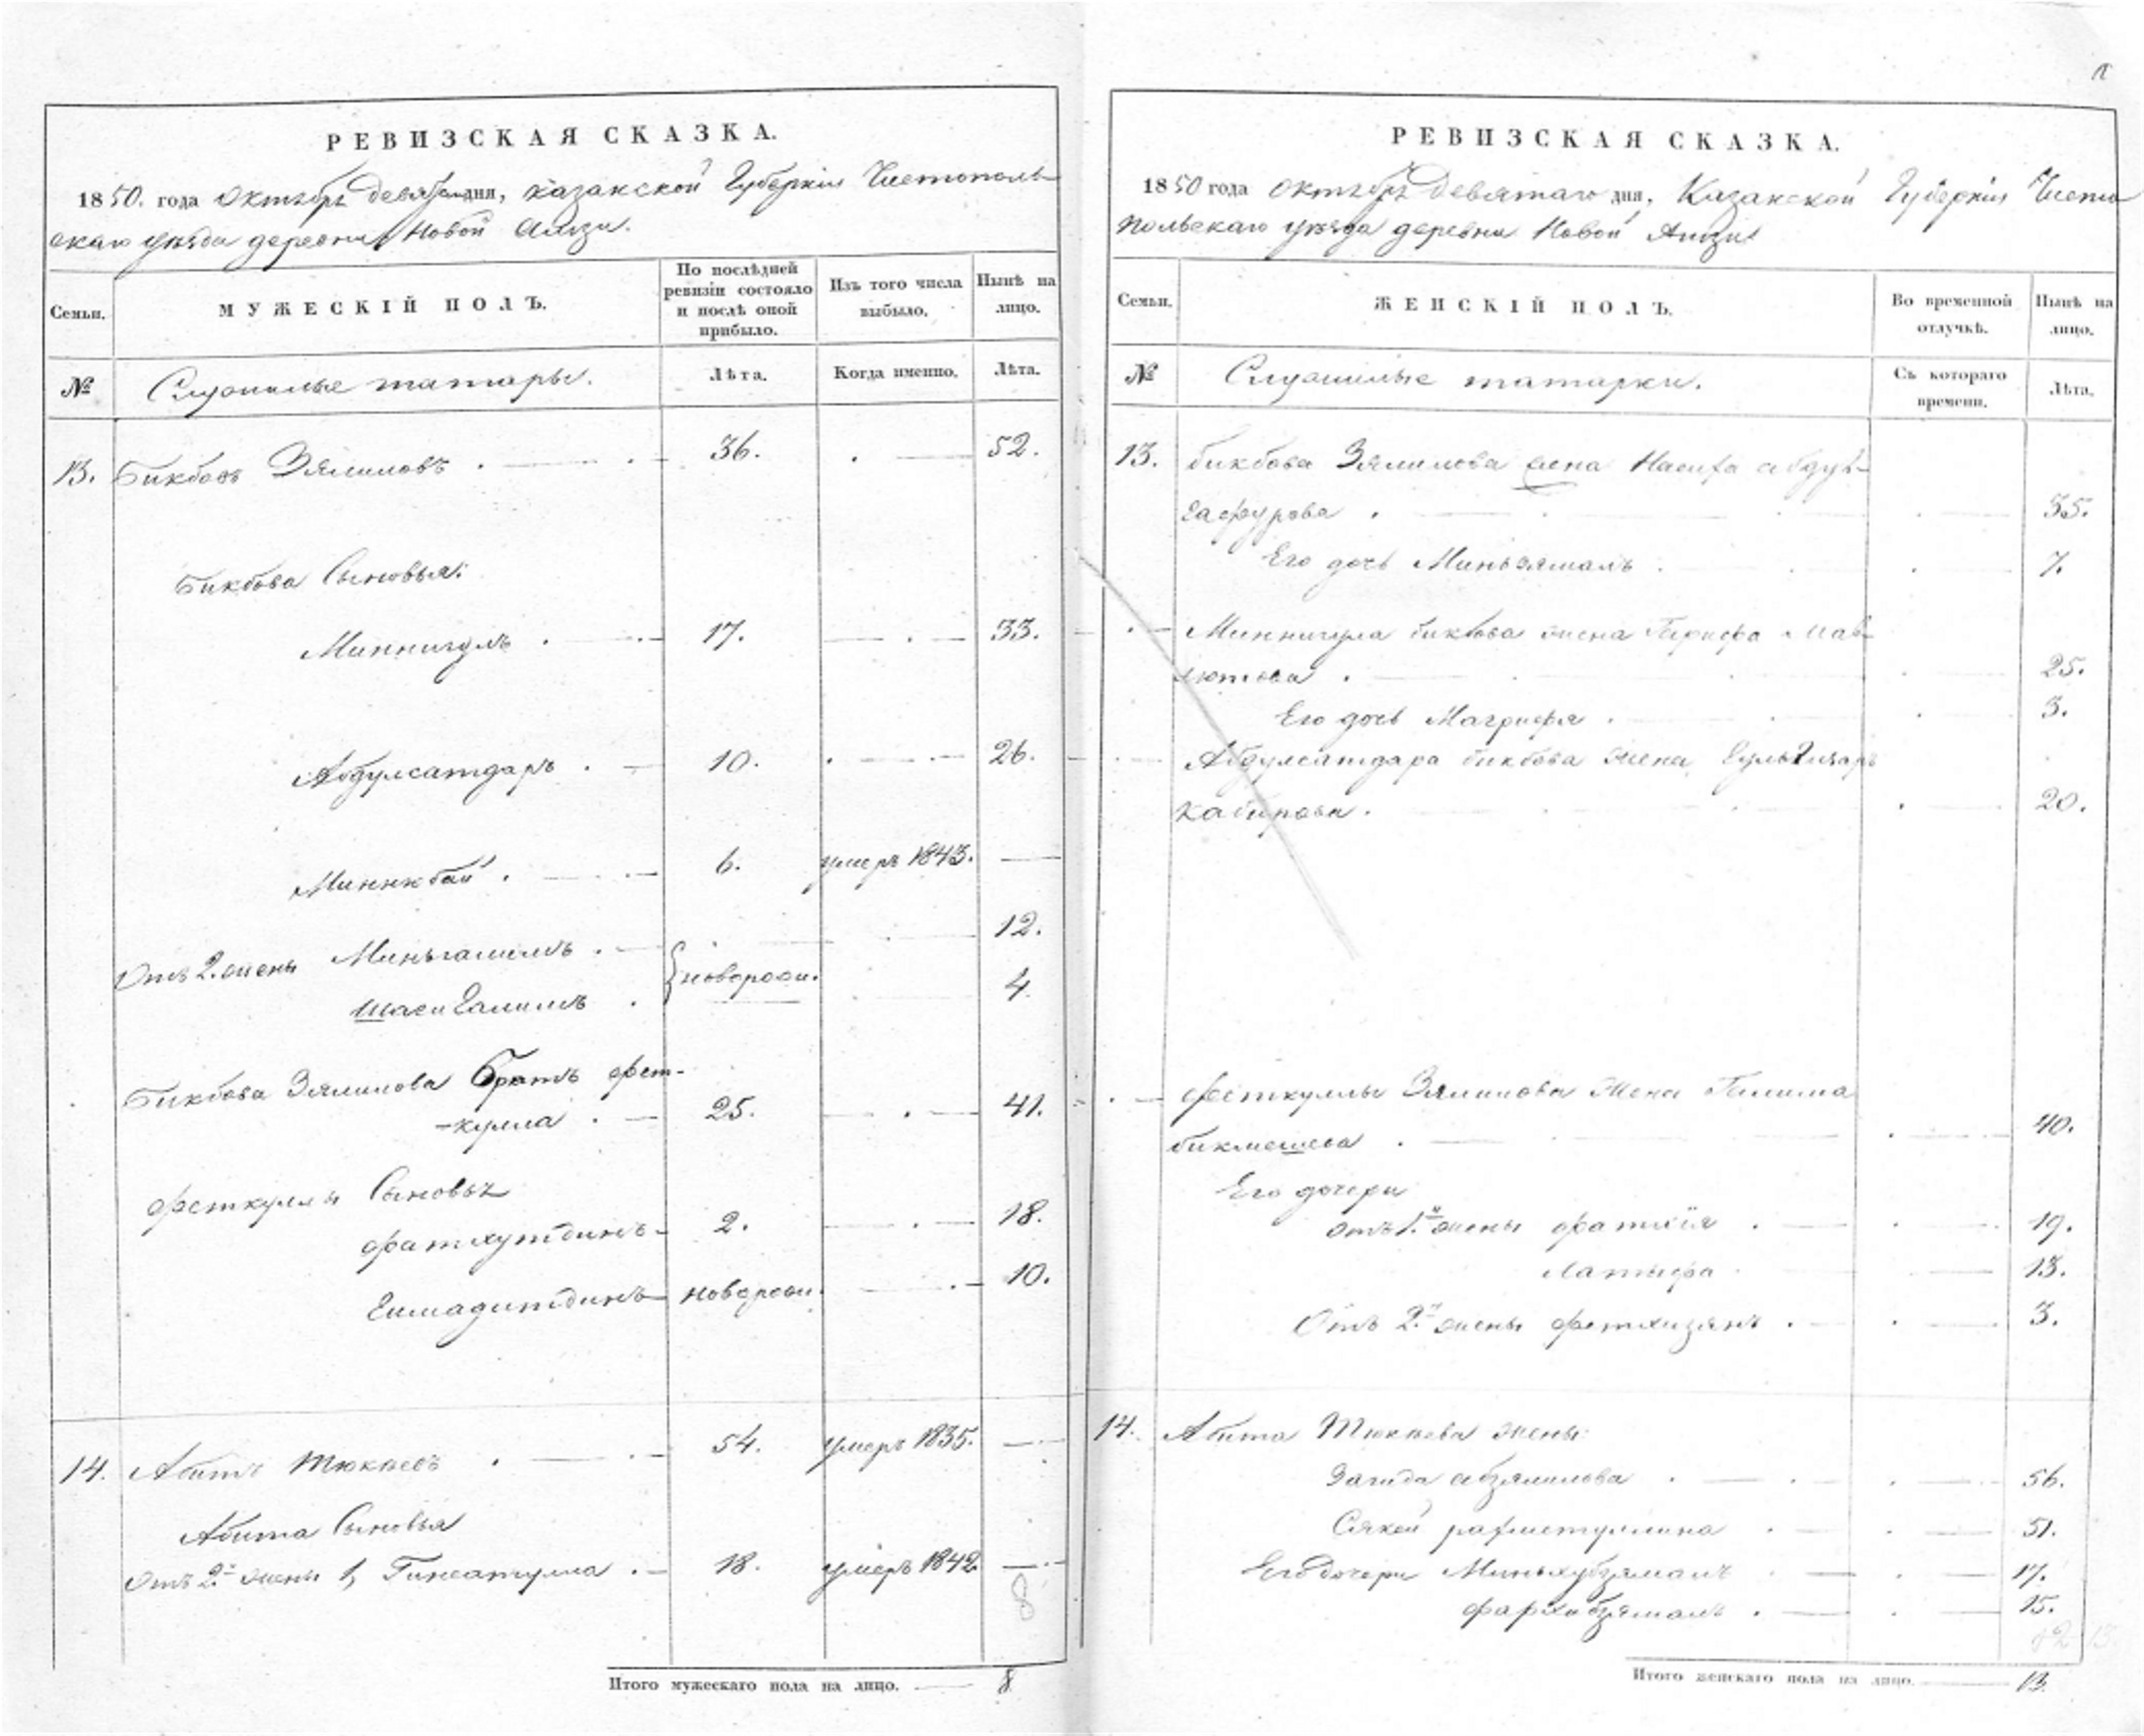 РЕВИЗСКАЯ СКАЗКА.
1850. года Октября девятаго дня, Казанской Губернiи Чистополь
скаго уѣзда деревни Новой
Семьи.
МУЖЕСКІЙ ПОЛЪ.
По послѣдней
ревизіи состояло
и послѣ оной
прибыло.
Изъ того числа
выбыло.
Нынѣ на
лицо.
№
Служилые татары.
Лѣта.
Когда именно.
Лѣта.
13. Бикбовъ Зялиловъ . 36. 52.
Бикбова Сыновья:
Миннигулъ . 17. 33.
Абдулсатдаръ . 10. 26.
Миннкбай . 6. умеръ 1843. —
Отъ 2. жены Миньгалимъ . 12.
новорож. 4.
Бикбова Зялилова Братъ Фет-
-кулла . 25. 41.
Феткуллы Сыновья
Фатхутдинъ 2. 18.
новорож. 10.
14. Абитъ Тюкаевъ . 54. умеръ 1835. —
Абита Сыновья
Отъ 2й жены 1, 18. умеръ 1842 —
8
Итого мужескаго пола на лицо. 8
РЕВИЗСКАЯ СКАЗКА.
1850 года Октября девятаго дня, Казанской Губернiи Чисто
польскаго уѣзда деревни Новой
Семьи.
ЖЕНСКІЙ ПОЛЪ.
Во временной
отлучкѣ.
Нынѣ на
лицо.
№
Служилые татарки.
Съ котораго
времени.
Лѣта.
13. Бикбова Зялилова жена Насифа Абдул-
гафурова . 35.
Его дочь Миньзямалъ . 7.
Миннигула Бикбова жена Гарифа Мав-
лютова . 25.
Его дочь Магрифя . 3.
Абдулсатдара Бикбова жена
Кабирова . 20.
Феткуллы Зялилова жена Галима
Бикмешева . 40.
Его дочери
отъ 1й жены Фатхія . 19.
Латыфа 13.
Отъ 2й жены Фетхизянъ . 3.
14. Абита Тюкаева жены:
Загида Абзялилова . 56.
51.
Его дочери Миньхубзямалъ 17.
15.
Итого женскаго пола на лицо. 13.